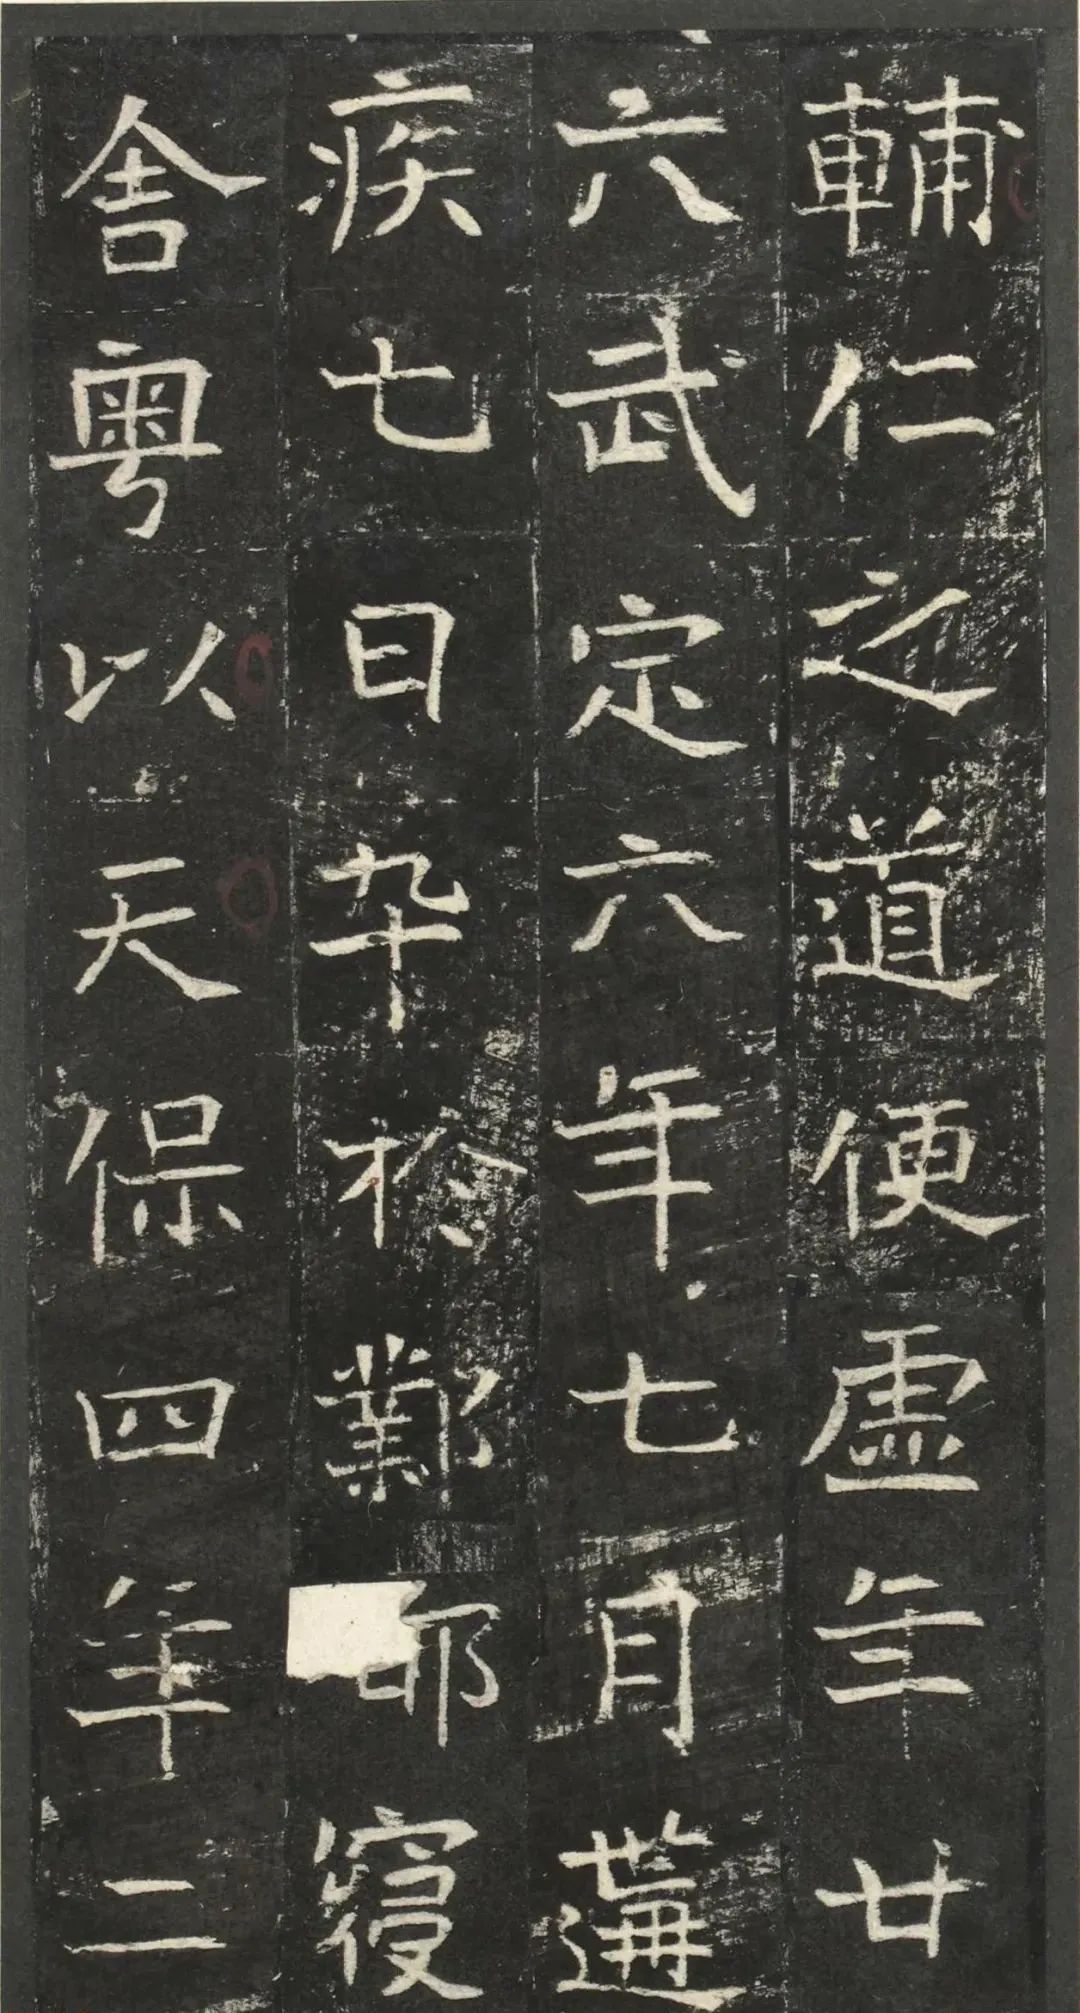 輔仁之道便虛年廿
六武定六年七月遘
疾七日卒於鄴都寑
舍粵以天保四年二